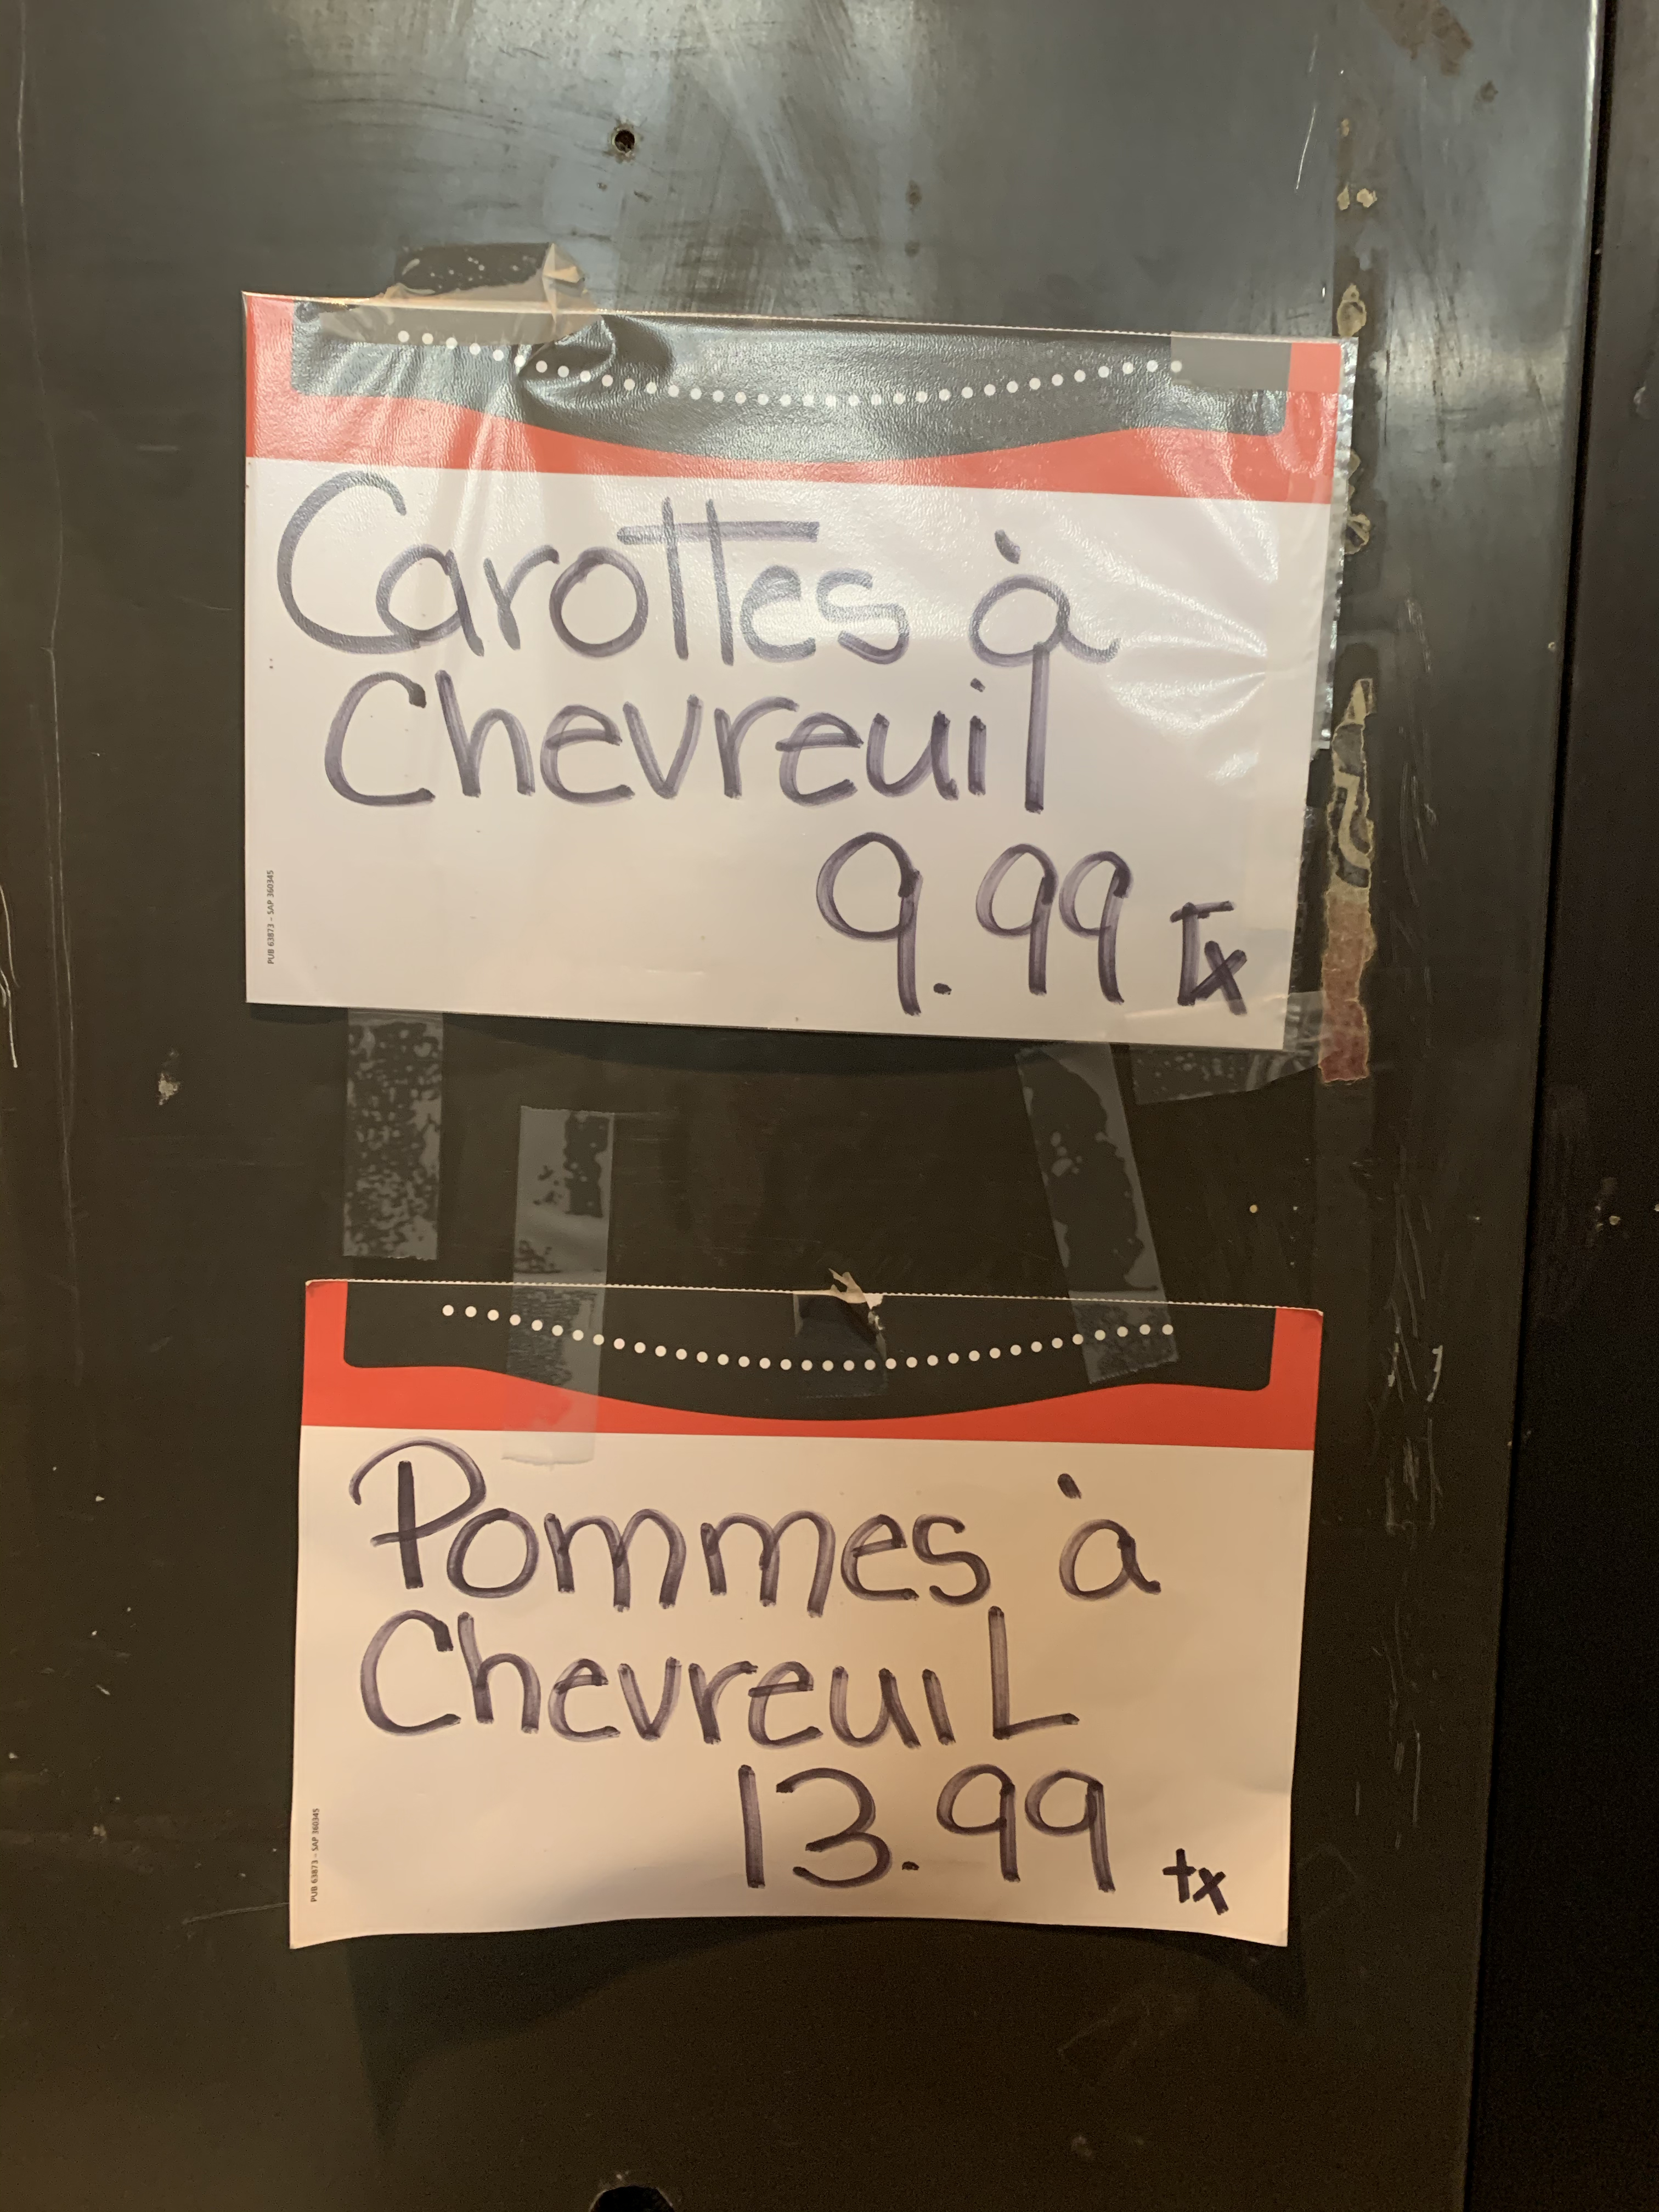 Carottes à
Chevreuil
9.99 Tx
PUB 63873 – SAP 360345
Pommes à
ChevreuiL
13.99 tx
PUB 63873 – SAP 360345